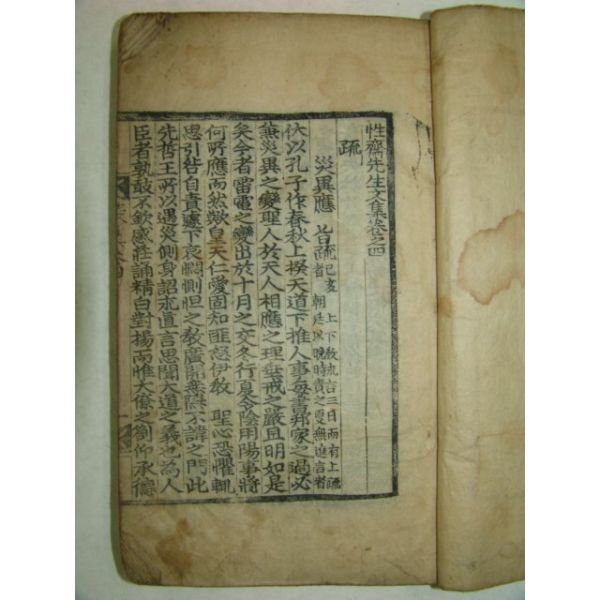 性齋先生文集卷之四
疏
災異應旨疏 己亥 上下敎求言三日而有上疏者 朝廷以晩時責之更無進言者
伏以孔子作春秋上揆天道下推人事每書邦家之過必
兼災異之變聖人於天人相應之理垂戒之嚴且明如是
矣今者雷電之變出於十月之交冬行夏令陰用陽事將
何所應而然歟皇天仁愛固知匪怒伊敎 聖心恐懼輒
思引咎自責 下哀惻怛之敎廣開無隱不諱之門此
先哲王所以遇災側身詔求直言思聞大道之義也為人
臣者孰敢不欽感莊誦精白對揚而惟大僚之劄仰承德